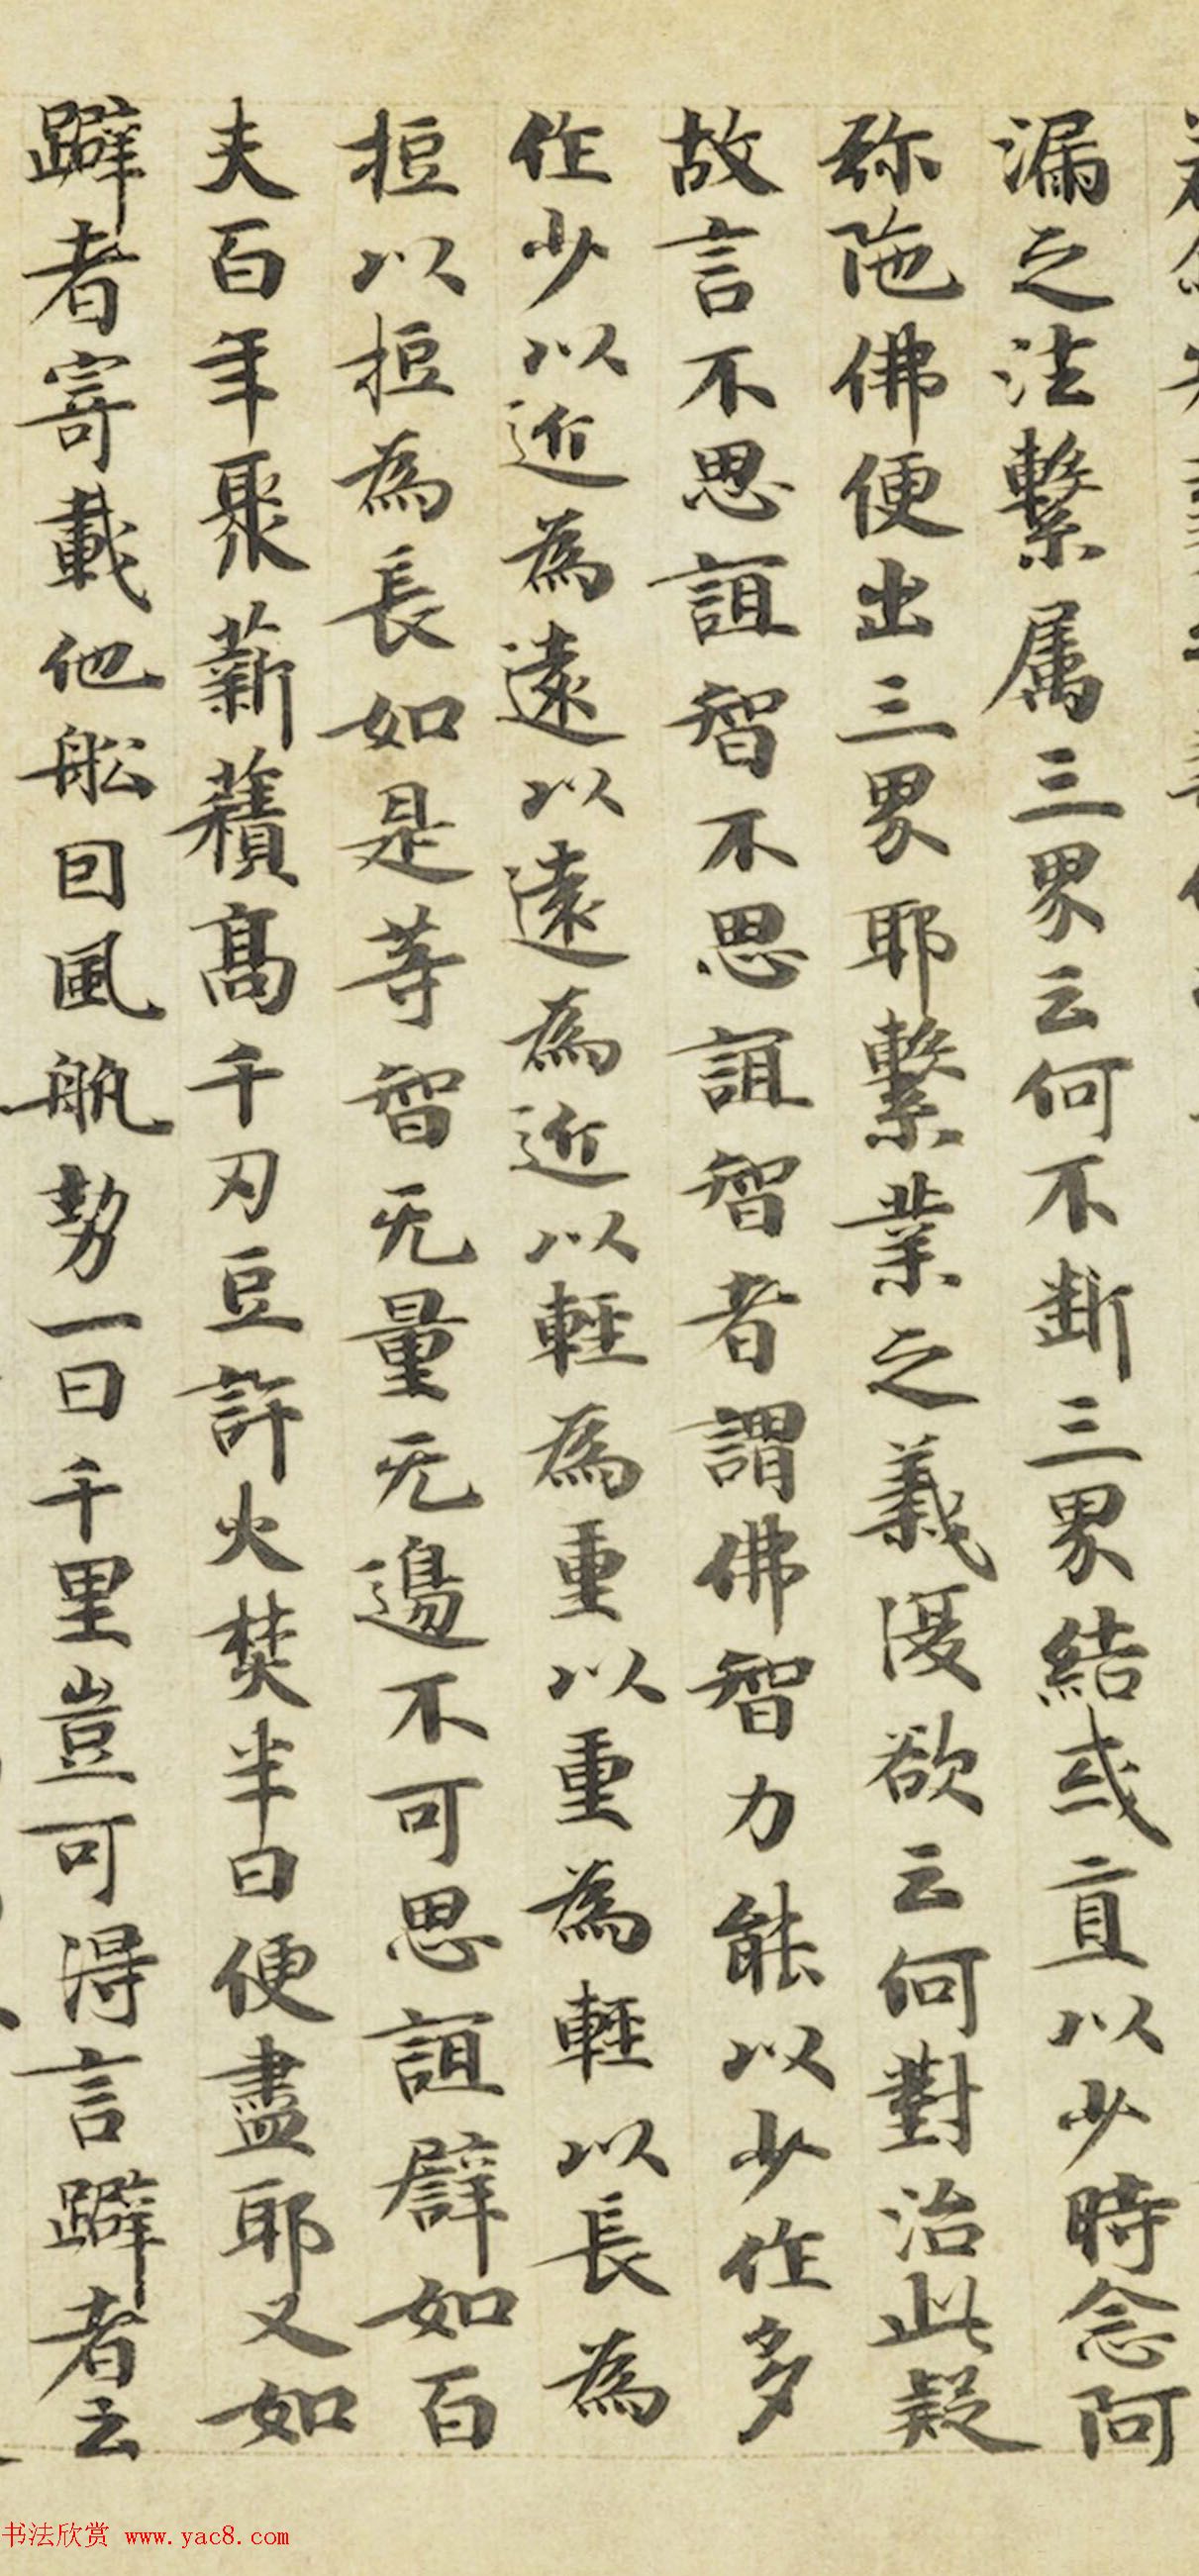 漏之法繫属三界云何不断三界結或直以少時念阿
弥陁佛便出三界耶繫業之義復欲云何對治此疑
故言不思誼智不思誼智者謂佛智力能以少作多
作少以近為遠以遠為近以輕為重以重為輕以長為
挋以挋為長如是等智无量无邊不可思誼譬如百
夫百年聚薪積高千刃豆許火焚半日便盡耶又如
躃者寄載他舩因風帆勢一日千里豈可得言躃者云
书法欣赏 www.yac8.com